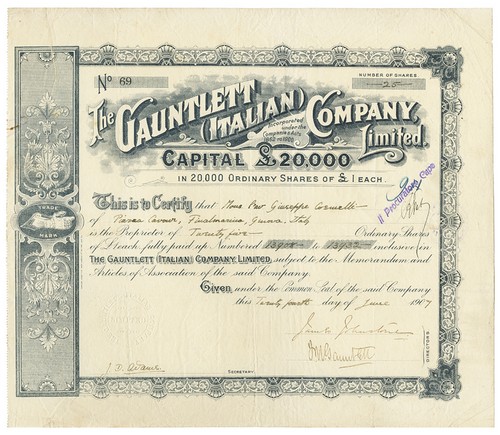 No 69
NUMBER OF SHARES
25
The GAUNTLETT (ITALIAN) COMPANY, Limited.
Incorporated under the Companies Acts 1862 to 1900
CAPITAL £20,000
IN 20,000 ORDINARY SHARES OF £1 EACH.
Il Procuratore Capo
This is to Certify that Giuseppe
of Piazza Cavour, Finalmarina, Genoa, Italy
is the Proprietor of Twenty five Ordinary Shares
of £1 each fully paid up Numbered to inclusive in
THE GAUNTLETT (ITALIAN) COMPANY, LIMITED, subject to the Memorandum and
Articles of Association of the said Company.
Given under the Common Seal of the said Company
this Twenty fourth day of June 1907
TRADE
MARK
James Johnstone
Gauntlett
DIRECTORS
SECRETARY